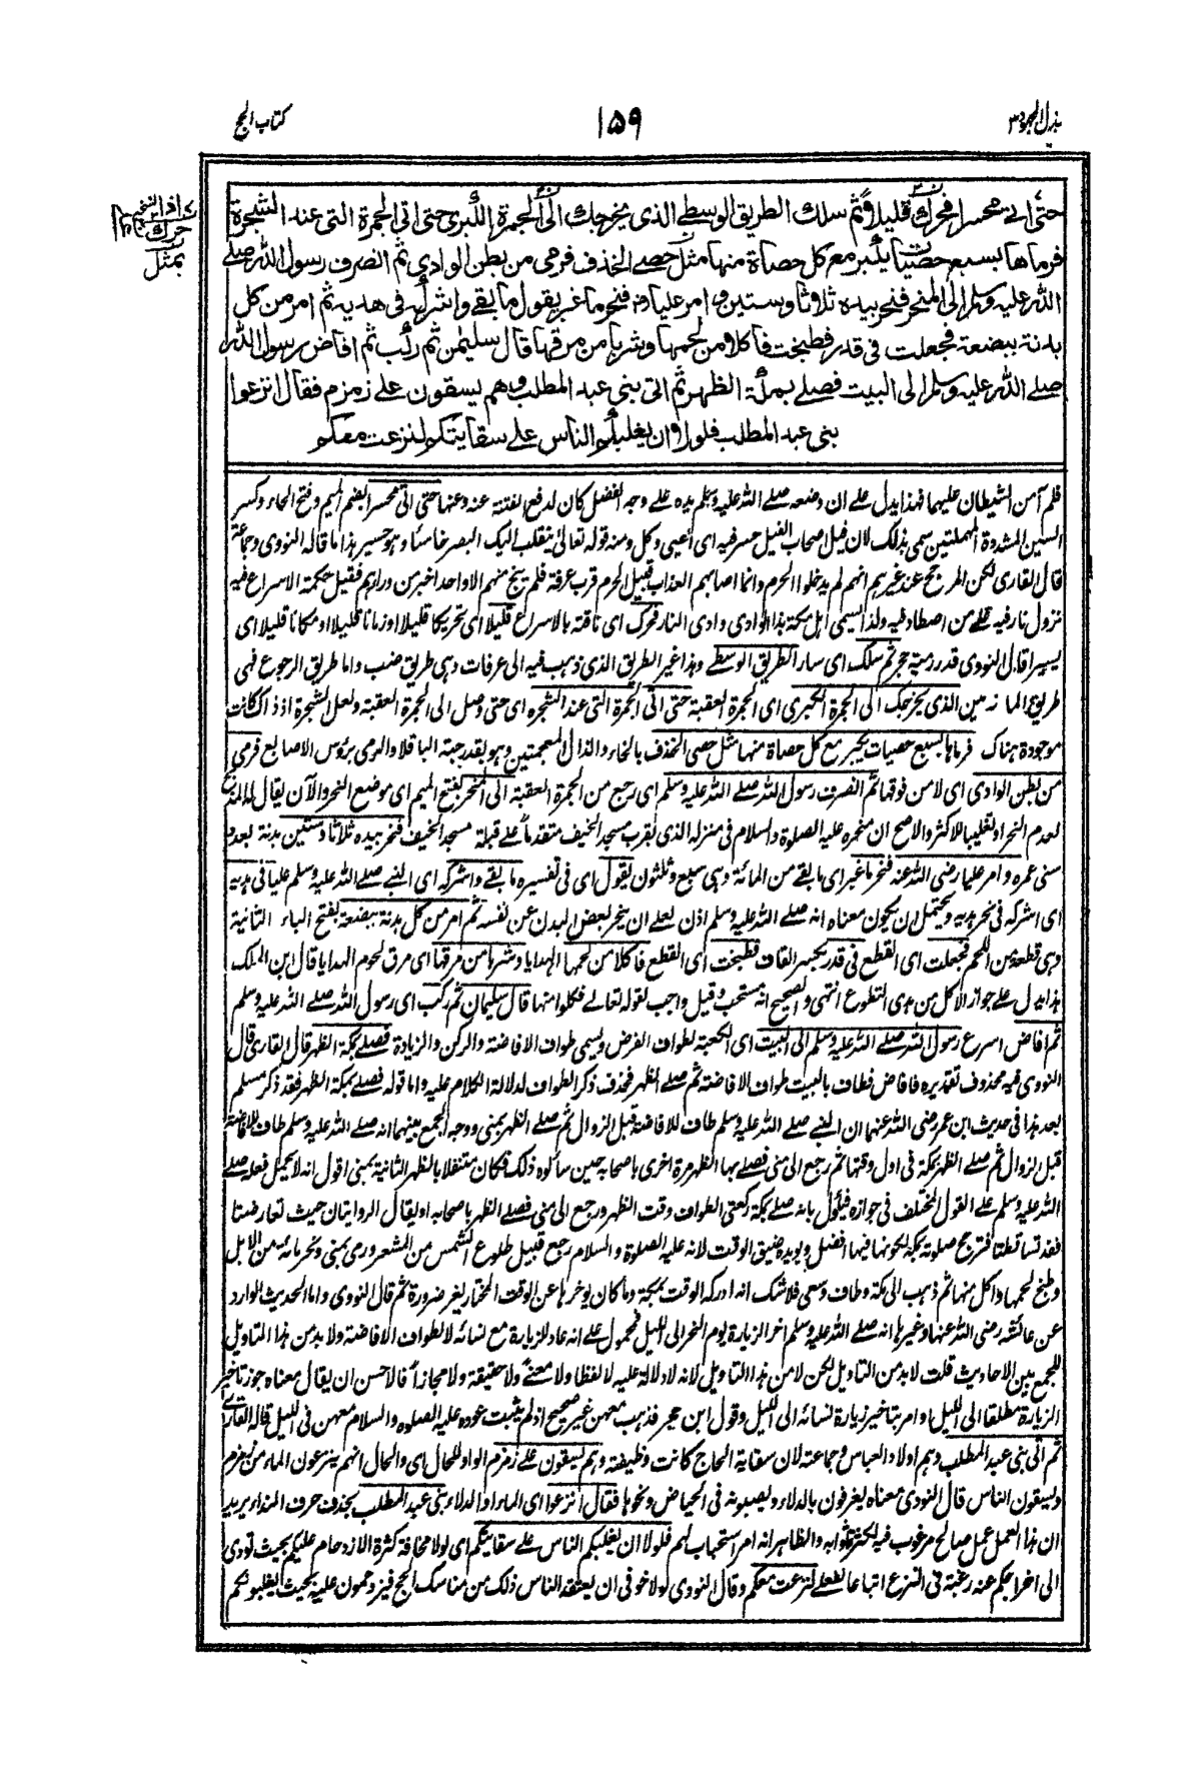 بذل المجهود ٣
١٥٩
كتاب الحج
حتى اتى محسرا فحرك قليلا ثم سلك الطريق الوسطى الذي يخرجك الى الجمرة الكبرى حتى اتى الجمرة التي عند الشجرة
فرماها بسبع حصيات يكبر مع كل حصاة منها مثل حصى الخذف فرمى من بطن الوادي ثم انصرف رسول الله صلى
الله عليه وسلم الى المنحر فنحر بيده ثلاثا وستين وامر عليا فنحر ما غبر يقول ما بقي واشركه في هديه ثم امر من كل
بدنة ببضعة فجعلت في قدر فطبخت فاكلا من لحمها وشربا من مرقها قال سليمن ثم ركب ثم افاض رسول الله
صلى الله عليه وسلم الى البيت فصلى بمكة الظهر ثم اتى بني عبد المطلب وهم يسقون على زمزم فقال انزعوا
بني عبد المطلب فلولا ان يغلبكم الناس على سقايتكم لنزعت معكم
بمثل
فلم آمن الشيطان عليهما فهذا يدل على ان وضعه صلى الله عليه وسلم يده على وجه الفضل كان لدفع الفتنة عنه وعنها حتى اتى محسرا بضم الميم وفتح الحاء وكسر
السين المشددة المهملتين سمي بذلك لان فيل اصحاب الفيل حسر فيه اى أعيى وكل ومنه قوله تعالى ينقلب اليك البصر خاسئا وهو حسير هذا ما قاله النووى وجماعة
قال القارى لكن المرجح عند غيرهم انهم لم يدخلوا الحرم وانما اصابهم العذاب قبيل الحرم قرب عرفة فلم ينج منهم الا واحد اخبر من وراءهم فقيل حكمة الاسراع فيه
نزول نار فيه على من اصطاد فيه ولذا يسمى اهل مكة هذا الوادى وادى النار فحرك اى ناقته بالاسراع قليلا اى تحريكا قليلا او زمانا قليلا او مكانا قليلا اى
يسيرا قال النووى قدر رمية حجر ثم سلك اى سار الطريق الوسطى وهذا غير الطريق الذى ذهب فيه الى عرفات وهى طريق ضب واما طريق الرجوع فهى
طريق المازمين الذى يخرجك الى الجمرة الكبرى اى الجمرة العقبة حتى اتى الجمرة التى عند الشجرة اى حتى وصل الى الجمرة العقبة ولعل الشجرة اذ ذاك كانت
موجودة هناك فرماها بسبع حصيات يكبر مع كل حصاة منها مثل حصى الخذف بالخاء والذال المعجمتين وهو بقدر حبة الباقلا والرمى برؤس الاصابع فرمى
من بطن الوادى اى لا من فوقها ثم انصرف رسول الله صلى الله عليه وسلم اى رجع من الجمرة العقبة الى المنحر بفتح الميم اى موضع النحر والآن يقال له المذبح
لعدم النحر او تغليبا للاكثر والاصح ان منحره عليه الصلوة والسلام فى منزله الذى بقرب مسجد الخيف متقدما على قبلة مسجد الخيف فنحر بيده ثلاثا وستين بدنة بعدد
سنى عمره وامر عليا رضى الله عنه فنحر ما غبر اى ما بقى من المائة وهى سبع وثلثون يقول اى فى تفسيره ما بقى واشركه اى النبى صلى الله عليه وسلم عليا فى هديه
اى اشركه فى نحر هديه ويحتمل ان يكون معناه انه صلى الله عليه وسلم اذن لعلى ان ينحر بعض البدن عن نفسه ثم امر من كل بدنة ببضعة بفتح الباء الثانية
وهى قطعة من اللحم فجعلت اى القطع فى قدر بكسر القاف فطبخت اى القطع فاكلا من لحمها الهدايا وشربا من مرقها اى مرق لحوم الهدايا قال ابن الملك
هذا يدل على جواز الاكل من هدى التطوع انتهى والصحيح انه مستحب وقيل واجب لقوله تعالى فكلوا منها قال سليمان ثم ركب اى رسول الله صلى الله عليه وسلم
ثم افاض اسرع رسول الله صلى الله عليه وسلم الى البيت اى الكعبة لطواف الفرض ويسمى طواف الافاضة والركن والزيادة فصلى بمكة الظهر قال القارى قال
النووى فيه محذوف تقديره فافاض فطاف بالبيت طواف الافاضة ثم صلى الظهر فحذف ذكر الطواف لدلالة الكلام عليه واما قوله فصلى بمكة الظهر فقد ذكر مسلم
بعد هذا فى حديث ابن عمر رضى الله عنهما ان النبى صلى الله عليه وسلم طاف للافاضة قبل الزوال ثم صلى الظهر بمنى ووجه الجمع بينهما انه صلى الله عليه وسلم طاف للافاضة
قبل الزوال ثم صلى الظهر بمكة فى اول وقتها ثم رجع الى منى فصلى بها الظهر مرة اخرى باصحابه حين سألوه ذلك فكان متنفلا بالظهر الثانية بمنى اقول انه لا يحمل فعله صلى
الله عليه وسلم على القول المختلف فى جوازه فيأول بانه صلى بمكة ركعتى الطواف وقت الظهر ورجع الى منى فصلى الظهر باصحابه او يقال الروايتان حيث تعارضتا
فقد تساقطتا فترجح صلوته بمكة لكونها فيها افضل ويويده ضيق الوقت لانه عليه الصلوة والسلام رجع قبيل طلوع الشمس من المشعر ورمى بمنى ونحر مائة من الابل
وطبخ لحمها واكل منها ثم ذهب الى مكة وطاف وسعى فلا شك انه ادركه الوقت بمكة وما كان يوخرها عن الوقت المختار لغير ضرورة ثم قال النووى واما الحديث الوارد
عن عائشة رضى الله عنها وغيرها انه صلى الله عليه وسلم اخر الزيارة يوم النحر الى الليل فمحمول على انه عاد للزيارة مع نسائه لا لطواف الافاضة ولا بد من هذا التاويل
للجمع بين الاحاديث قلت لا بد من التاويل لكن لا من هذا التاويل لانه لا دلالة عليه لا لفظا ولا معنى ولا حقيقة ولا مجازا فالاحسن ان يقال معناه جوز تاخير
الزيارة مطلقا الى الليل او امر بتاخير زيارة نسائه الى الليل وقول ابن حجر فذهب معهن غير صحيح اذ لم يثبت عوده عليه الصلوة والسلام معهن فى الليل قاله القارى
ثم اتى بنى عبد المطلب وهم اولاد العباس وجماعته لان سقاية الحاج كانت وظيفته وهم يسقون على زمزم الواو للحال اى والحال انهم ينزعون الماء من زمزم
ويسقون الناس قال النووى معناه يغرفون بالدلاء ويصبونه فى الحياض ونحوها فقال انزعوا اى الماء او الدلاء بنى عبد المطلب بحذف حرف النداء يريد
ان هذا العمل عمل صالح مرغوب فيه لكثرة ثوابه والظاهر انه امر استحباب لهم فلولا ان يغلبكم الناس على سقايتكم اى لولا مخافة كثرة الازدحام عليكم بحيث تودى
الى اخراجكم عنه رغبة فى النزع اتباعا لفعلى لنزعت معكم وقال النووى لولا خوفى ان يعتقد الناس ذلك من مناسك الحج فيزدحمون عليه بحيث يغلبونكم